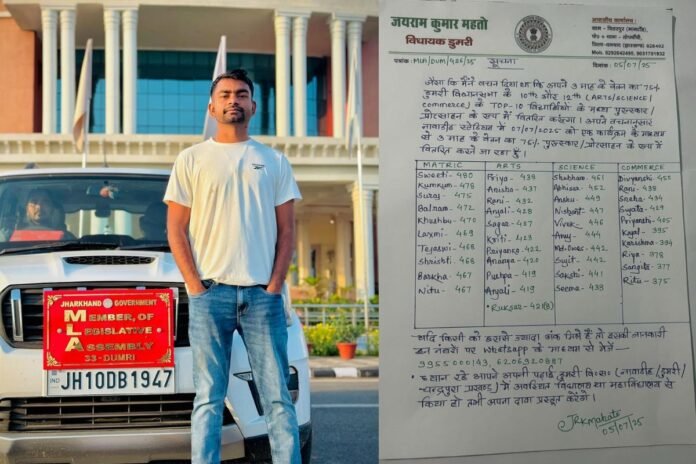 Reebok
JHARKHAND GOVERNMENT
M
L
A
MEMBER, OF
LEGISLATIVE
ASSEMBLY
33-DUMRI
IND
JH10DB1947
जयराम कुमार महतो
विधायक डुमरी
आवासीय कार्यालय :
दिनांक : 05/07/25
सूचना
जैसा कि मैंने वचन दिया था कि अपने 3 माह के वेतन का 75%
डुमरी विधानसभा के 10th और 12th (ARTS/SCIENCE/
commerce) के TOP-10 विद्यार्थियों के मध्य पुरुस्कार/
प्रोत्साहन के रूप में वितरित करूंगा। अपने वचनानुसार
नावाडीह स्टेडियम में 07/07/2025 को एक कार्यक्रम के माध्यम
से 3 माह के वेतन का 75% पुरुस्कार/प्रोत्साहन के रूप में
वितरित करने जा रहा हूं।
MATRIC ARTS SCIENCE COMMERCE
Sweeti - 480 Priya - 438 Shubham - 461 Divyanshi - 455
Kumkum - 478 Anisha - 437 Abhisa - 452 Rani - 438
Suraj - 475 Rani - 432 Anshu - 449 Sneha - 434
Balram - 472 Anjali - 428 Nishant - 447 Sujata - 429
Khushbu - 470 Sagar - 427 Vivek - 446 Priyanshi - 405
Laxmi - 469 Kriti - 423 Anuj - 444 Kajal - 395
Tejaswi - 468 Priyanka - 422 Md. Owes - 442 Karishma - 394
Shrishti - 468 Ananya - 420 Sujit - 442 Riya - 378
Barkha - 467 Pushpa - 419 Sakshi - 441 Sangita - 377
Nitu - 467 Anjali - 419 Seema - 439 Ritu - 375
Ruksar - 421(B)
यदि किसी को इससे ज्यादा अंक मिले हैं तो इसकी जानकारी
इन नंबरों पर Whatsapp के माध्यम से भेजें —
9955000143, 6206920887
ध्यान रहे आपने अपनी पढ़ाई डुमरी वि०स० (नावाडीह/डुमरी/
चन्द्रपुरा प्रखण्ड) में अवस्थित विद्यालय या महाविद्यालय से
किया हो तभी अपना दावा प्रस्तुत करेंगे।
JRKmahato
05/07/25